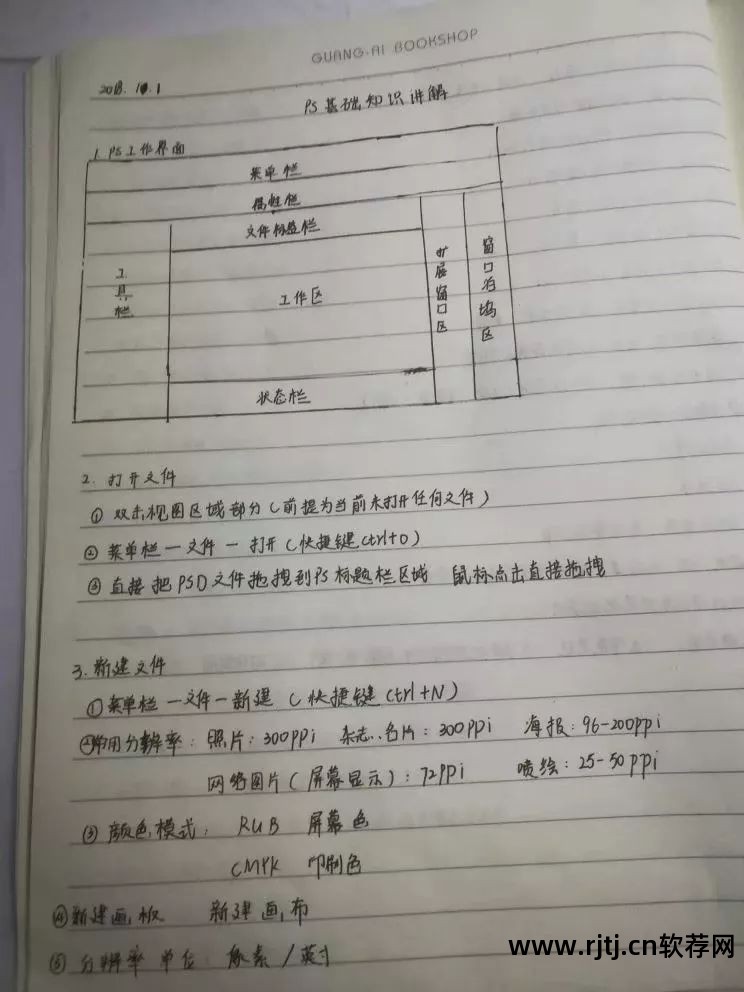 GUANG·AI BOOKSHOP
2018.10.1
PS基础知识讲解
1. PS工作界面
菜单栏
属性栏
文件标题栏
工具栏
工作区
扩展窗口区
窗口泊坞区
状态栏
2. 打开文件
① 双击视图区域部分(前提为当前未打开任何文件)
② 菜单栏—文件—打开(快捷键ctrl+O)
③ 直接把PSD文件拖拽到PS标题栏区域 鼠标点击直接拖拽
3. 新建文件
① 菜单栏—文件—新建(快捷键ctrl+N)
②常用分辨率: 照片: 300ppi 杂志、名片: 300ppi 海报: 96-200ppi
网络图片(屏幕显示): 72ppi 喷绘: 25-50ppi
③ 颜色模式: RGB 屏幕色
CMYK 印刷色
④新建画板 新建画布
⑤ 分辨率单位: 像素/英寸
www.rjtj.cn软荐网